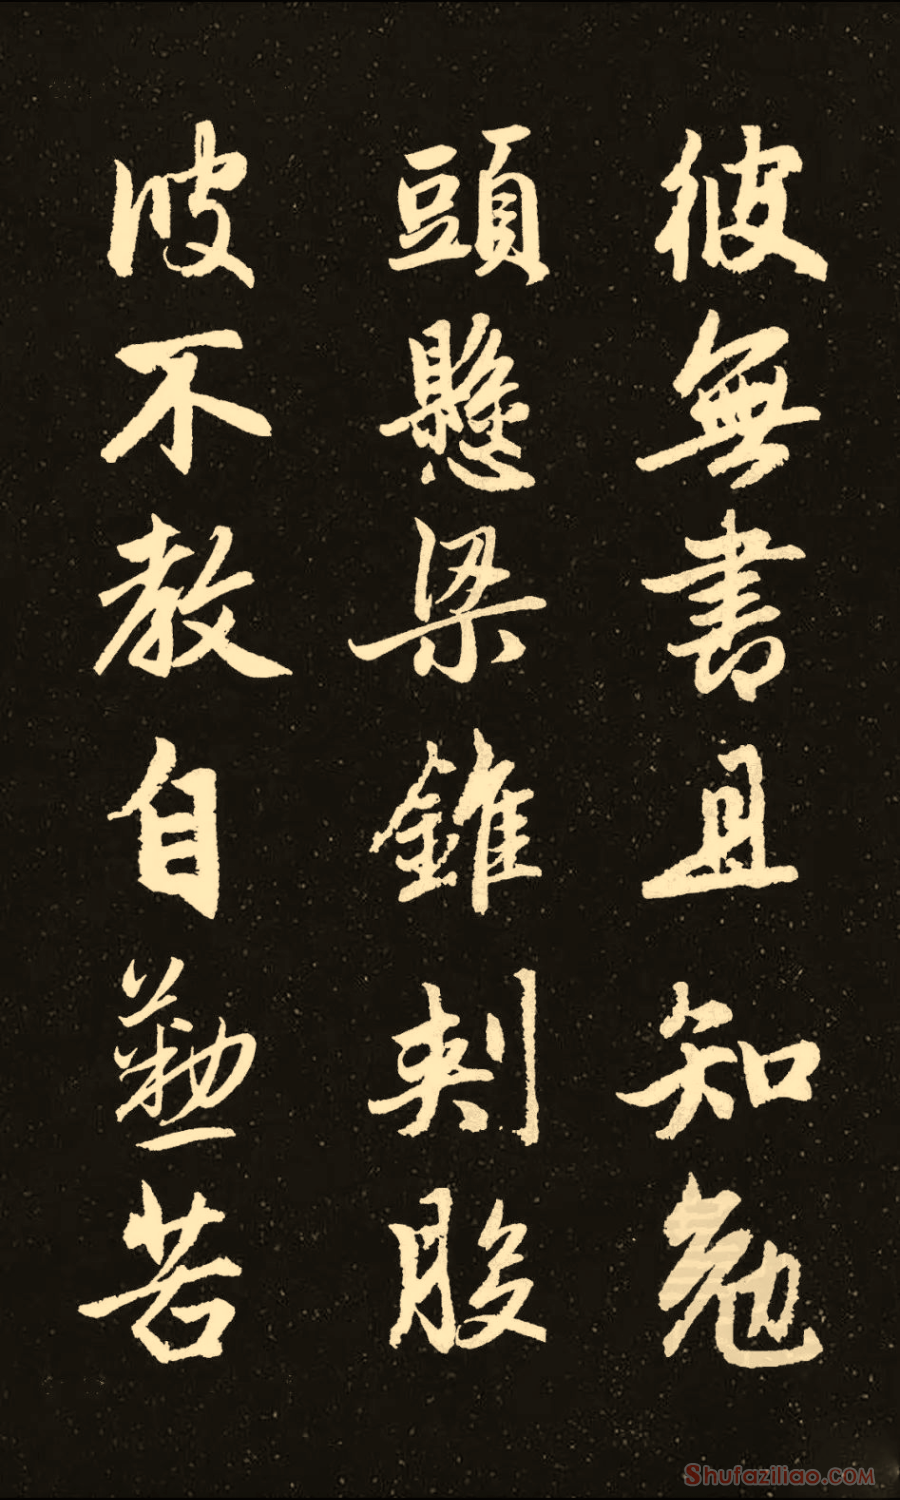 彼無書且知勉
頭懸梁錐刺股
彼不教自勤苦
Shufaziliao.COM